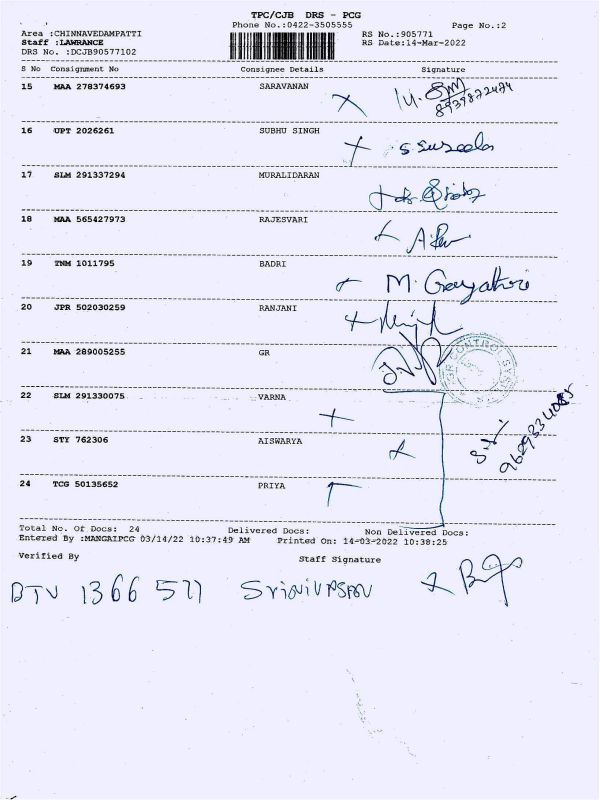 TPC/CJB DRS - PCG
Phone No.:0422-3505555
Page No.:2
Area :CHINNAVEDAMPATTI
RS No.:905771
Staff :LAWRANCE
RS Date:14-Mar-2022
DRS No. :DCJB90577102
S No Consignment No Consignee Details Signature
15 MAA 278374693 SARAVANAN
16 UPT 2026261 SUBHU SINGH S Suseela
17 SLM 291337294 MURALIDARAN
18 MAA 565427973 RAJESVARI
19 TNM 1011795 BADRI M. Gayathri
20 JPR 502030259 RANJANI
21 MAA 289005255 GR
22 SLM 291330075 VARNA
23 STY 762306 AISWARYA
24 TCG 50135652 PRIYA
Total No. Of Docs: 24 Delivered Docs: Non Delivered Docs:
Entered By :MANGAIPCG 03/14/22 10:37:49 AM Printed On: 14-03-2022 10:38:25
Verified By Staff Signature
BTV 1366 511 Srinivasan